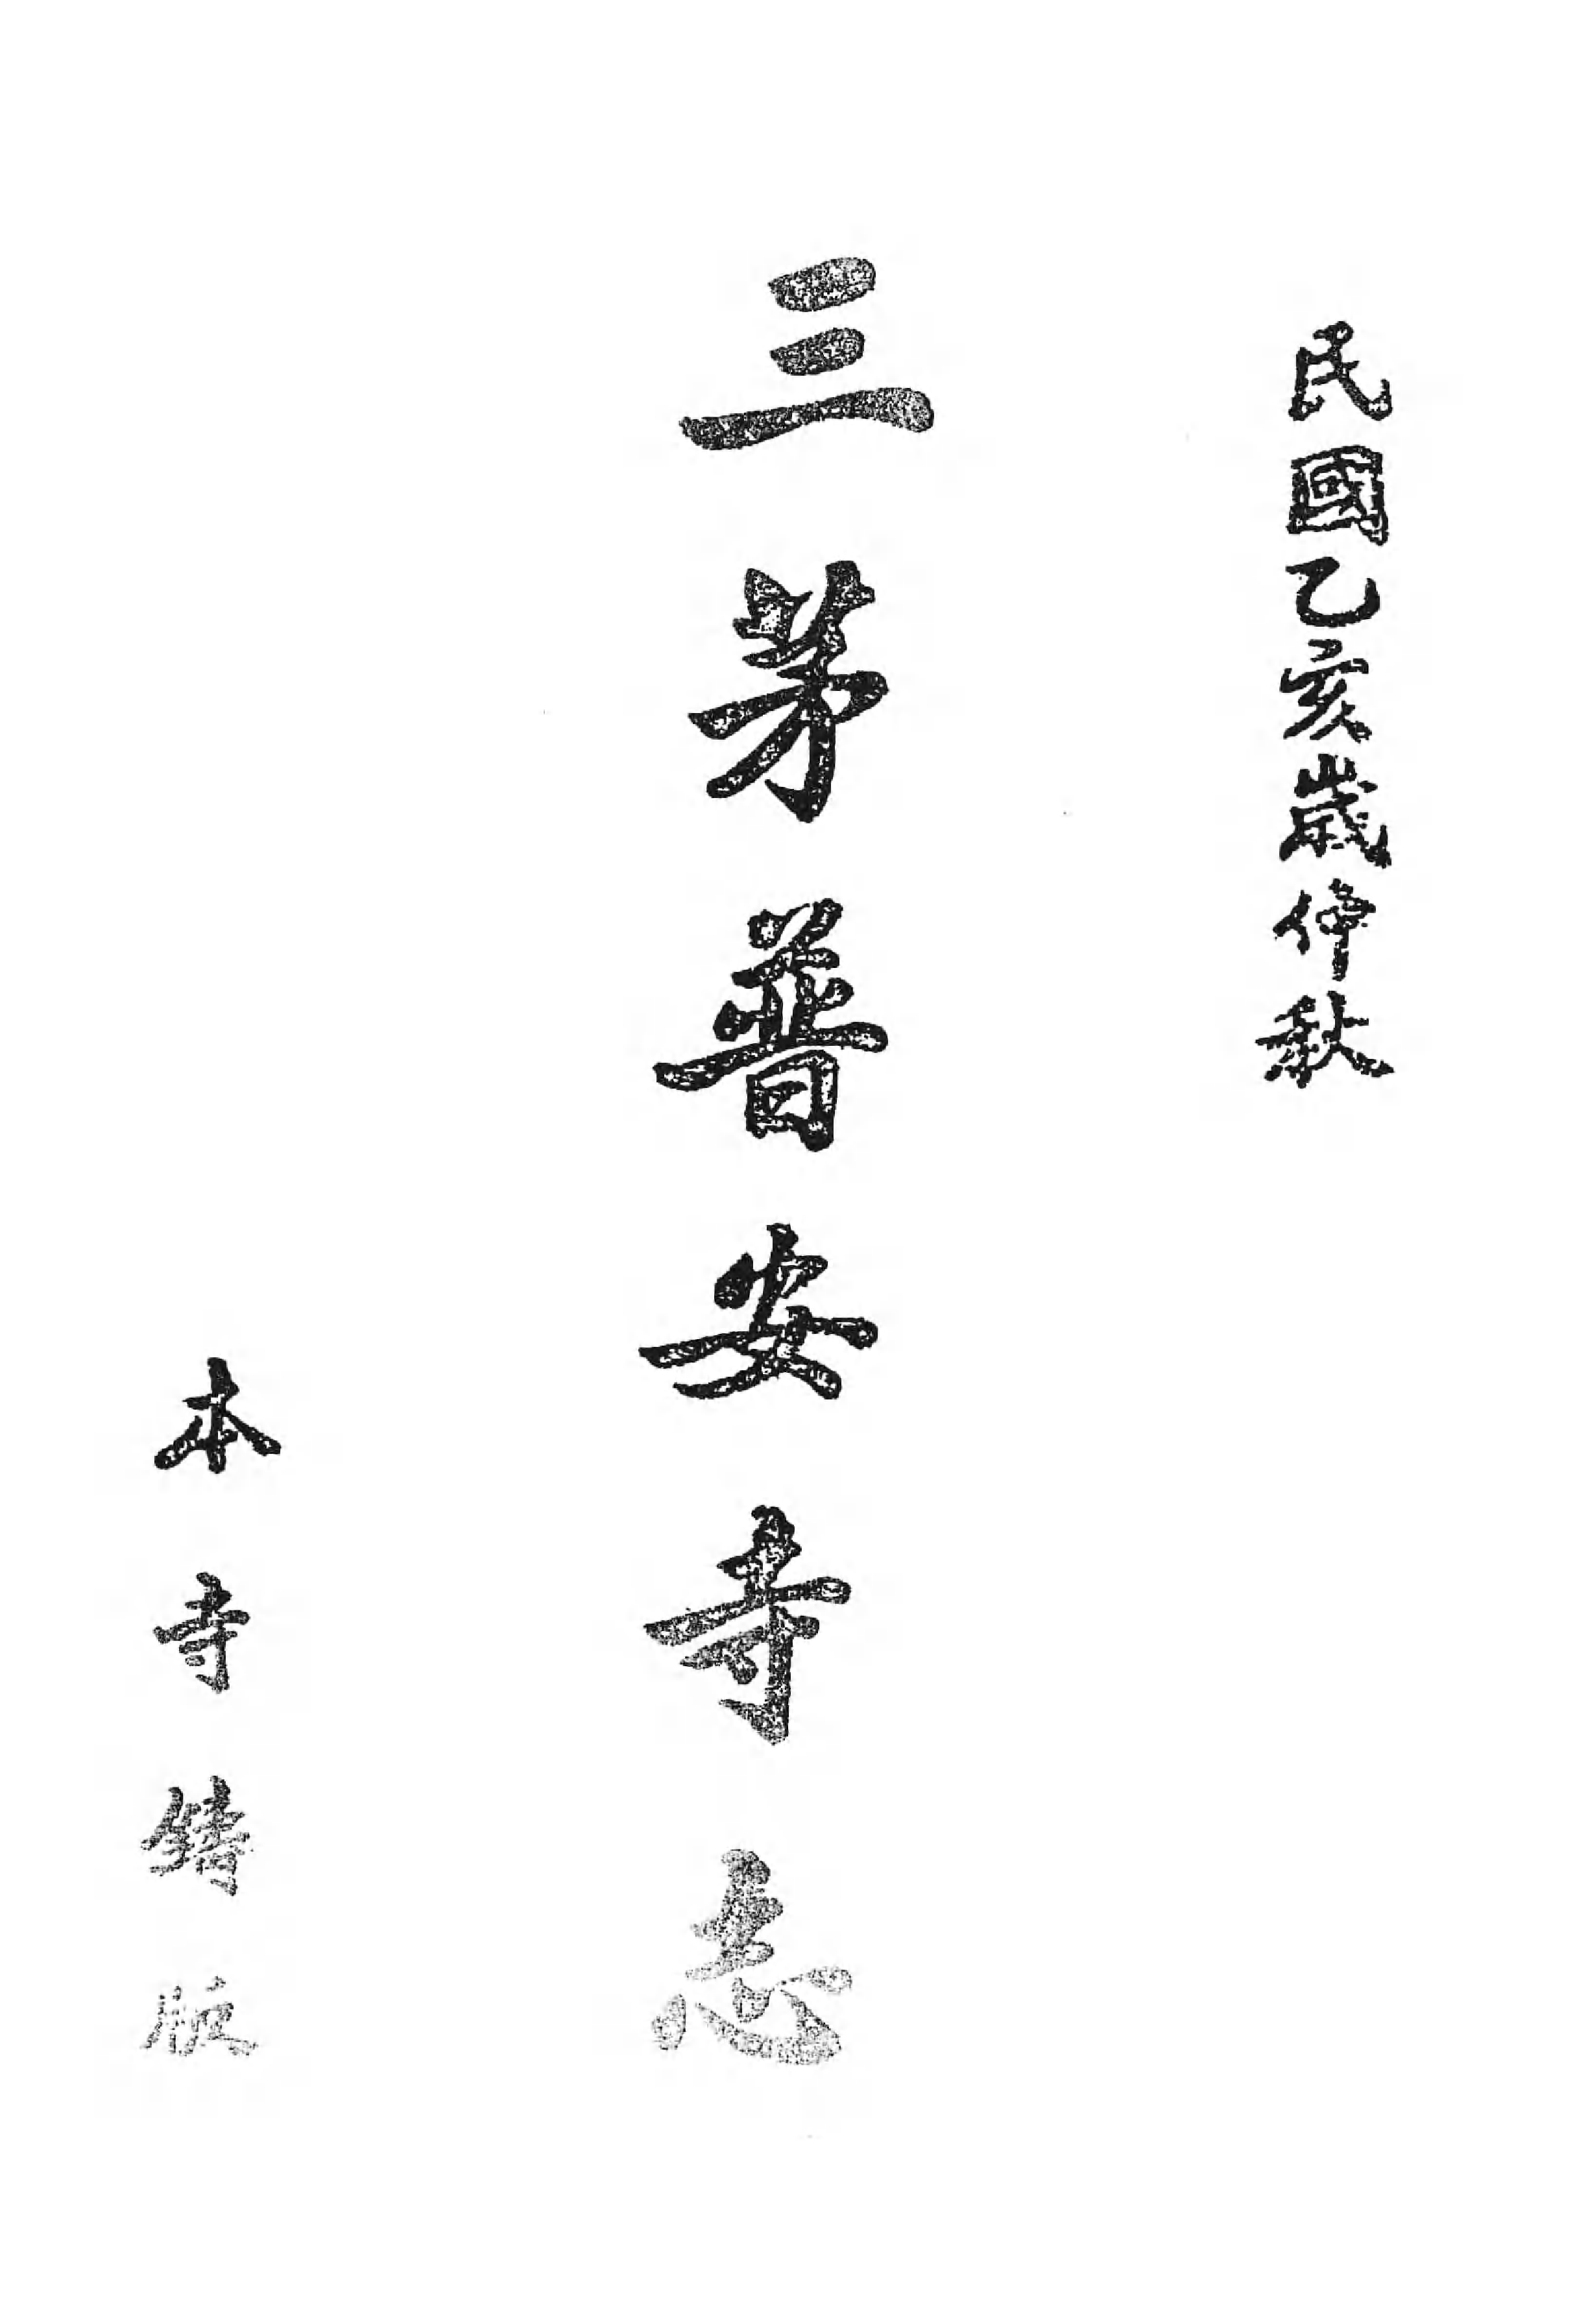 民國乙亥歲仲秋
三茅普安寺志
本寺鑄版